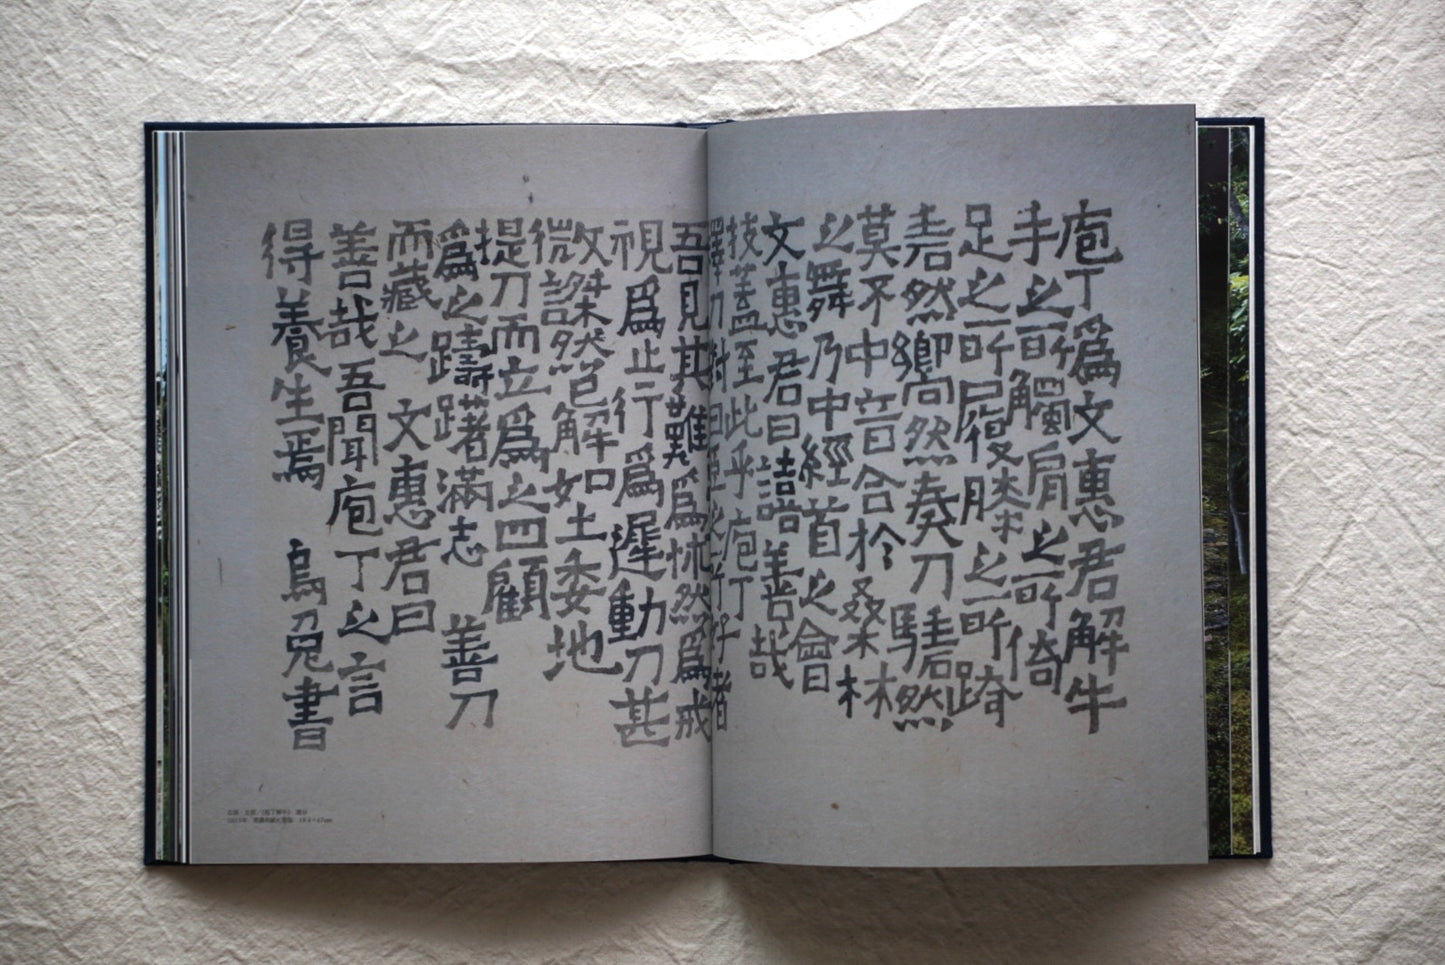 庖丁爲文惠君解牛
手之所觸肩之所倚
足之所履膝之所踦
砉然嚮然奏刀騞然
莫不中音合於桑林
之舞乃中經首之會
文惠君曰譆善哉
技蓋至此乎庖丁
釋刀對曰臣之所好者
吾見其難爲怵然爲戒
視爲止行爲遲動刀甚
微謋然已解如土委地
提刀而立爲之四顧
爲之躊躇滿志 善刀
而藏之文惠君曰
善哉吾聞庖丁之言
得養生焉 烏兔書